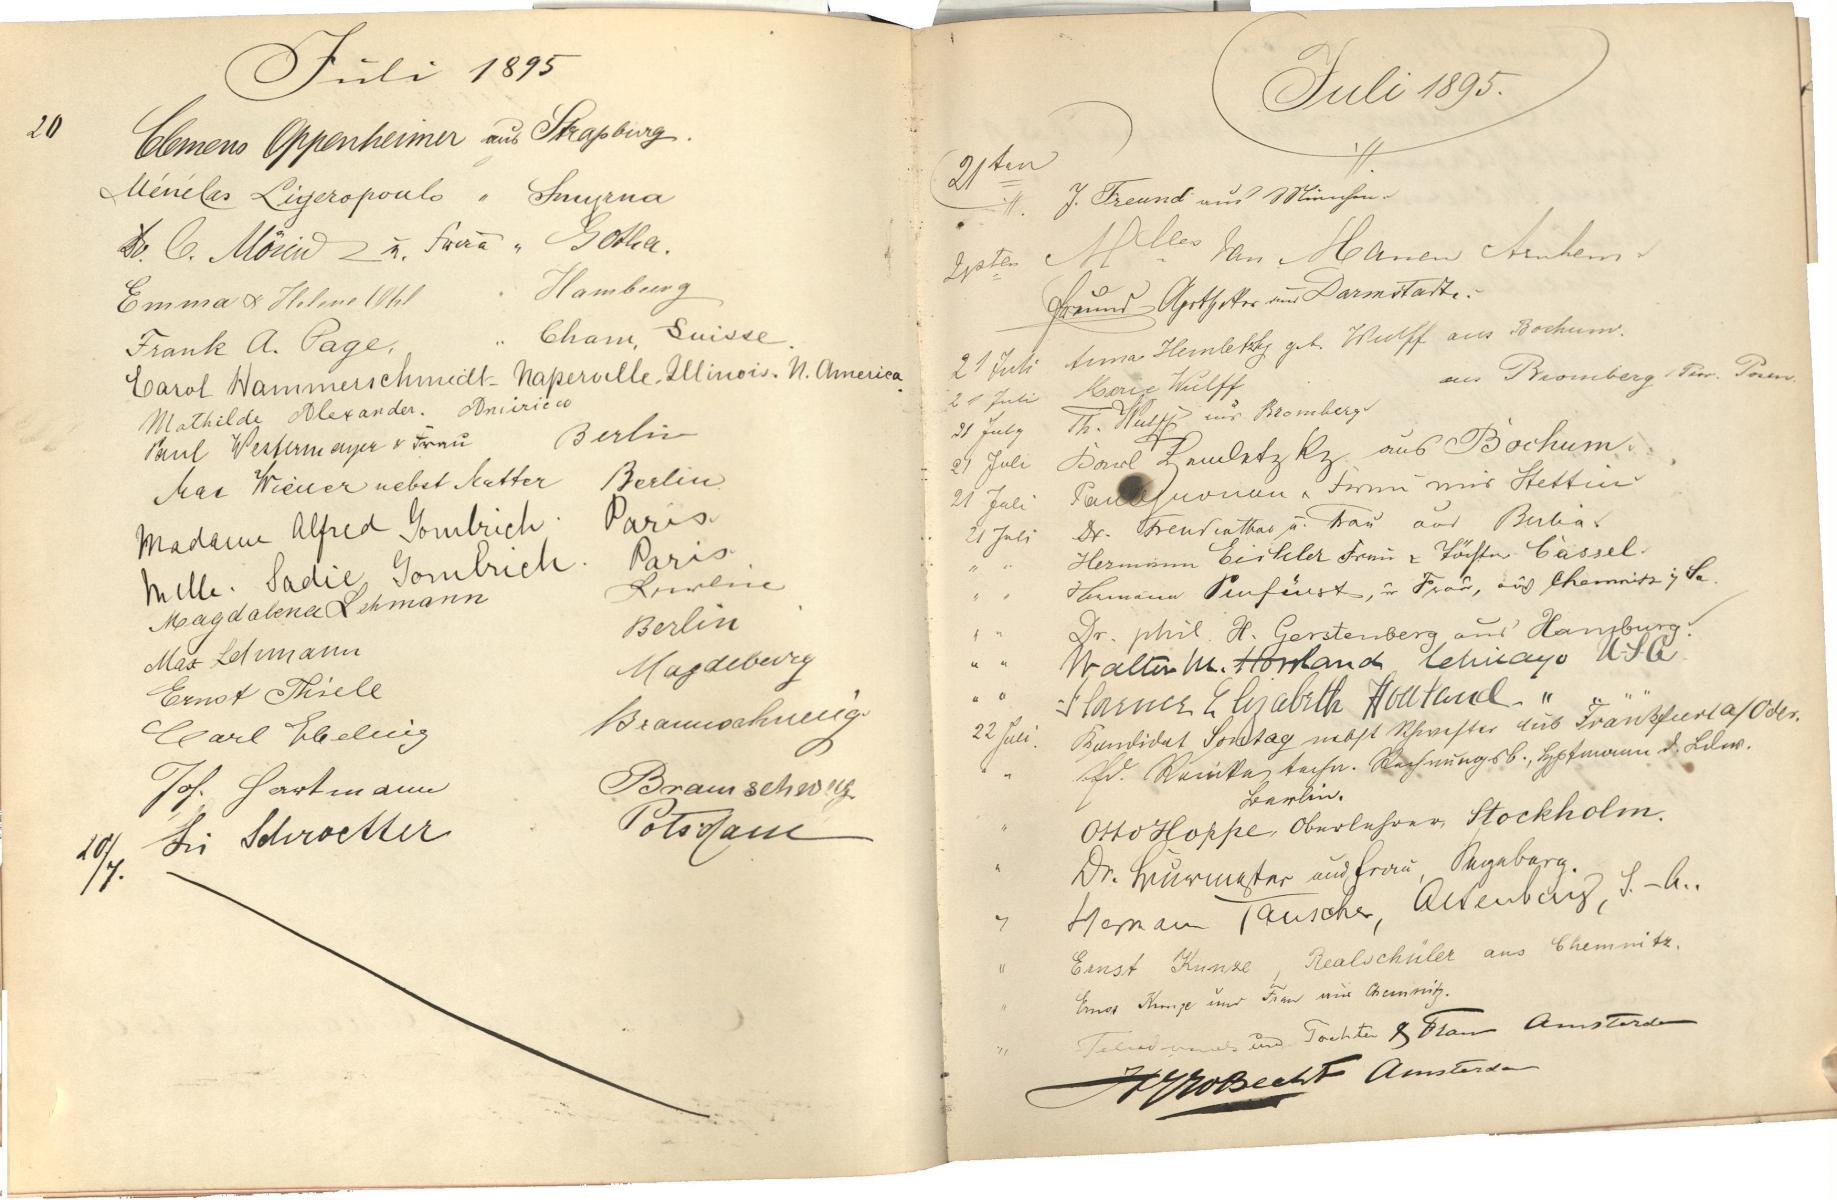 Juli 1895
20
Clemens Oppenheimer aus Straßburg.
Ménélas Ligeropoulo " Smyrna
Dr. C. u. Frau " Gotha.
Emma & Helene Uhl " Hamburg
Frank A. Page, " Cham, Suisse.
Carol Hammerschmidt - Naperville, Illinois. N. America.
Mathilde Alexander.
Paul Westermayer & Frau Berlin
Max Wiener nebst Mutter Berlin
Madame Alfred Gombrich. Paris
Melle. Sadie Gombrich. Paris
Magdalena Lehmann
Max Lehmann Berlin
Ernst Thiele Magdeburg
Carl Ebeling Braunschweig
Joh. Hartmann Braunschweig
20/7. Schroetter Potsdam
Juli 1895.
21ten
J. Freund aus München.
21sten Melles van Manen Arnhem.
Freund Apotheker aus Darmstadt.
21 Juli Anna geb. Wulff aus Bochum.
21 Juli Marie Wulff aus Bromberg Prov. Posen.
21 July Th. Wulff aus Bromberg
21 Juli Karl aus Bochum.
21 Juli & Frau aus Stettin
21 Juli Dr. u. Frau aus Berlin.
" " Hermann Eichler Frau & Tochter Cassel.
" " Hermann u Frau, aus Chemnitz i/ Sa.
" " Dr. phil. H. Gerstenberg aus Hamburg.
" " Walter M. Howland Chicago U.S.A
" " Florence Elizabeth Howland " " " "
22 Juli. Kandidat Sontag nebst Schwester aus Frankfurt a/Oder.
" " techn. Rechnungsb., Hptmann d. Ldw.
Berlin.
" Otto Hoppe, Oberlehrer, Stockholm.
" Dr. und Frau,
" Herman Tauscher, Altenburg, S.-A..
" Ernst Kunze, Realschüler aus Chemnitz.
" Ernst Kunze und Frau aus Chemnitz.
" und Tochter & Frau Amsterdam
Amsterdam